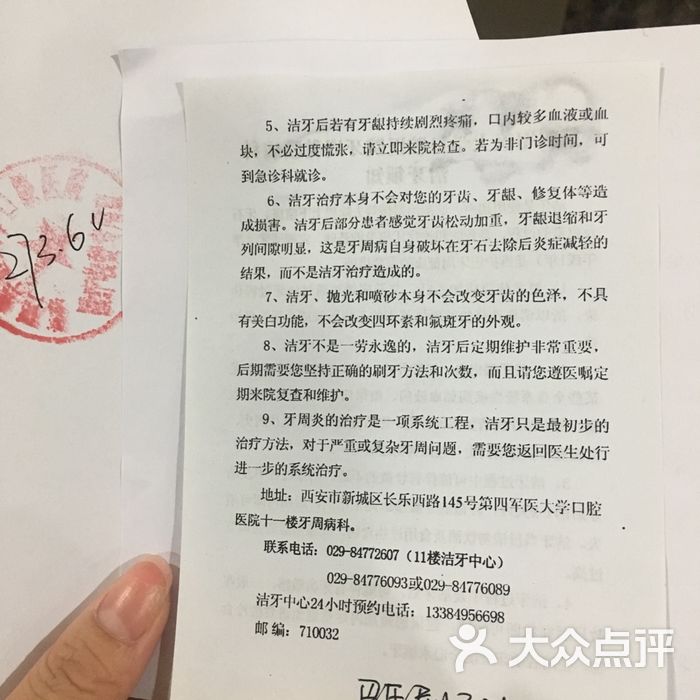 5、洁牙后若有牙龈持续剧烈疼痛，口内较多血液或血
块，不必过度慌张，请立即来院检查。若为非门诊时间，可
到急诊科就诊。
6、洁牙治疗本身不会对您的牙齿、牙龈、修复体等造
成损害。洁牙后部分患者感觉牙齿松动加重，牙龈退缩和牙
列间隙明显，这是牙周病自身破坏在牙石去除后炎症减轻的
结果，而不是洁牙治疗造成的。
7、洁牙、抛光和喷砂本身不会改变牙齿的色泽，不具
有美白功能，不会改变四环素和氟斑牙的外观。
8、洁牙不是一劳永逸的，洁牙后定期维护非常重要，
后期需要您坚持正确的刷牙方法和次数，而且请您遵医嘱定
期来院复查和维护。
9、牙周炎的治疗是一项系统工程，洁牙只是最初步的
治疗方法，对于严重或复杂牙周问题，需要您返回医生处行
进一步的系统治疗。
地址：西安市新城区长乐西路145号第四军医大学口腔
医院十一楼牙周病科。
联系电话：029-84772607（11楼洁牙中心）
029-84776093或029-84776089
洁牙中心24小时预约电话：13384956698
邮编：710032
大众点评